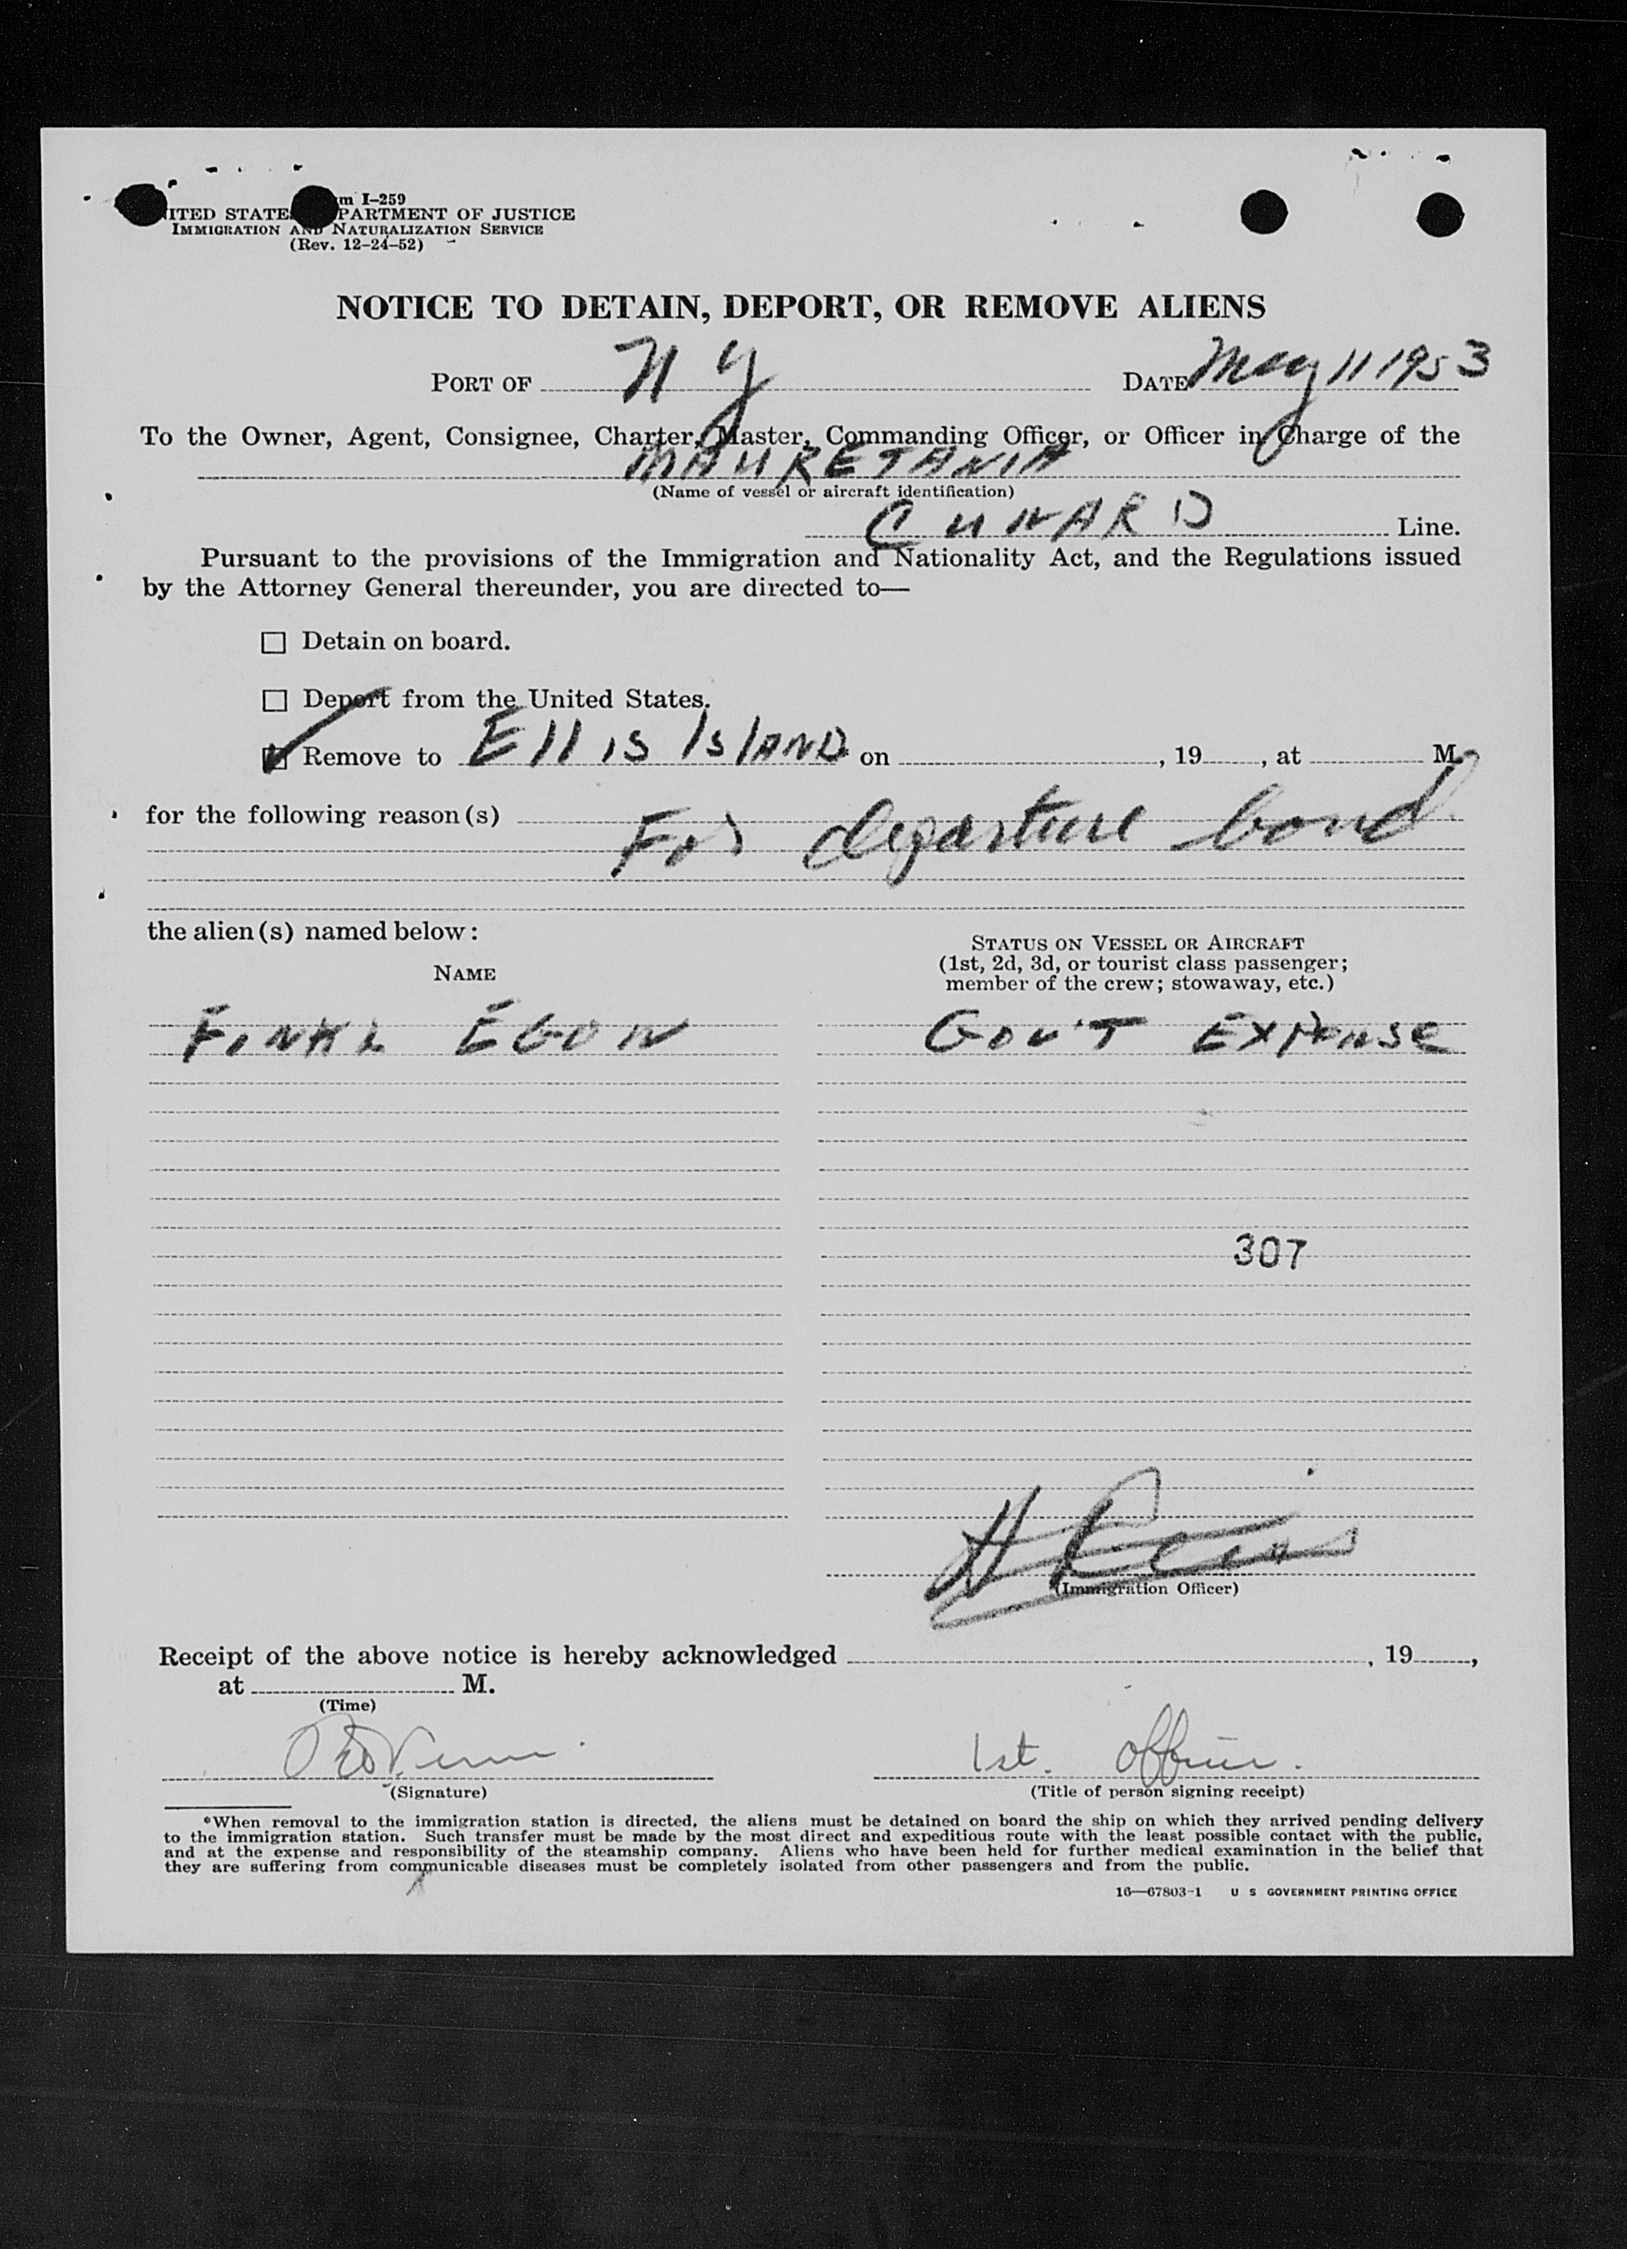 m I-259
ITED STATES PARTMENT OF JUSTICE
IMMIGRATION AND NATURALIZATION SERVICE
(Rev. 12-24-52)
NOTICE TO DETAIN, DEPORT, OR REMOVE ALIENS
PORT OF N Y DATE May 11 1953
To the Owner, Agent, Consignee, Charter, Master, Commanding Officer, or Officer in Charge of the
MAURETANIA
(Name of vessel or aircraft identification)
CUNARD Line.
Pursuant to the provisions of the Immigration and Nationality Act, and the Regulations issued
by the Attorney General thereunder, you are directed to—
☐ Detain on board.
☐ Deport from the United States.
☑ Remove to Ellis Island on , 19 , at M.
for the following reason(s)
For departure bond
the alien(s) named below:
NAME
STATUS ON VESSEL OR AIRCRAFT
(1st, 2d, 3d, or tourist class passenger;
member of the crew; stowaway, etc.)
EGON GOV'T EXPENSE
307
H
(Immigration Officer)
Receipt of the above notice is hereby acknowledged , 19 ,
at M.
(Time)
1st. Officer.
(Signature) (Title of person signing receipt)
*When removal to the immigration station is directed, the aliens must be detained on board the ship on which they arrived pending delivery
to the immigration station. Such transfer must be made by the most direct and expeditious route with the least possible contact with the public,
and at the expense and responsibility of the steamship company. Aliens who have been held for further medical examination in the belief that
they are suffering from communicable diseases must be completely isolated from other passengers and from the public.
16—67803-1 U S GOVERNMENT PRINTING OFFICE